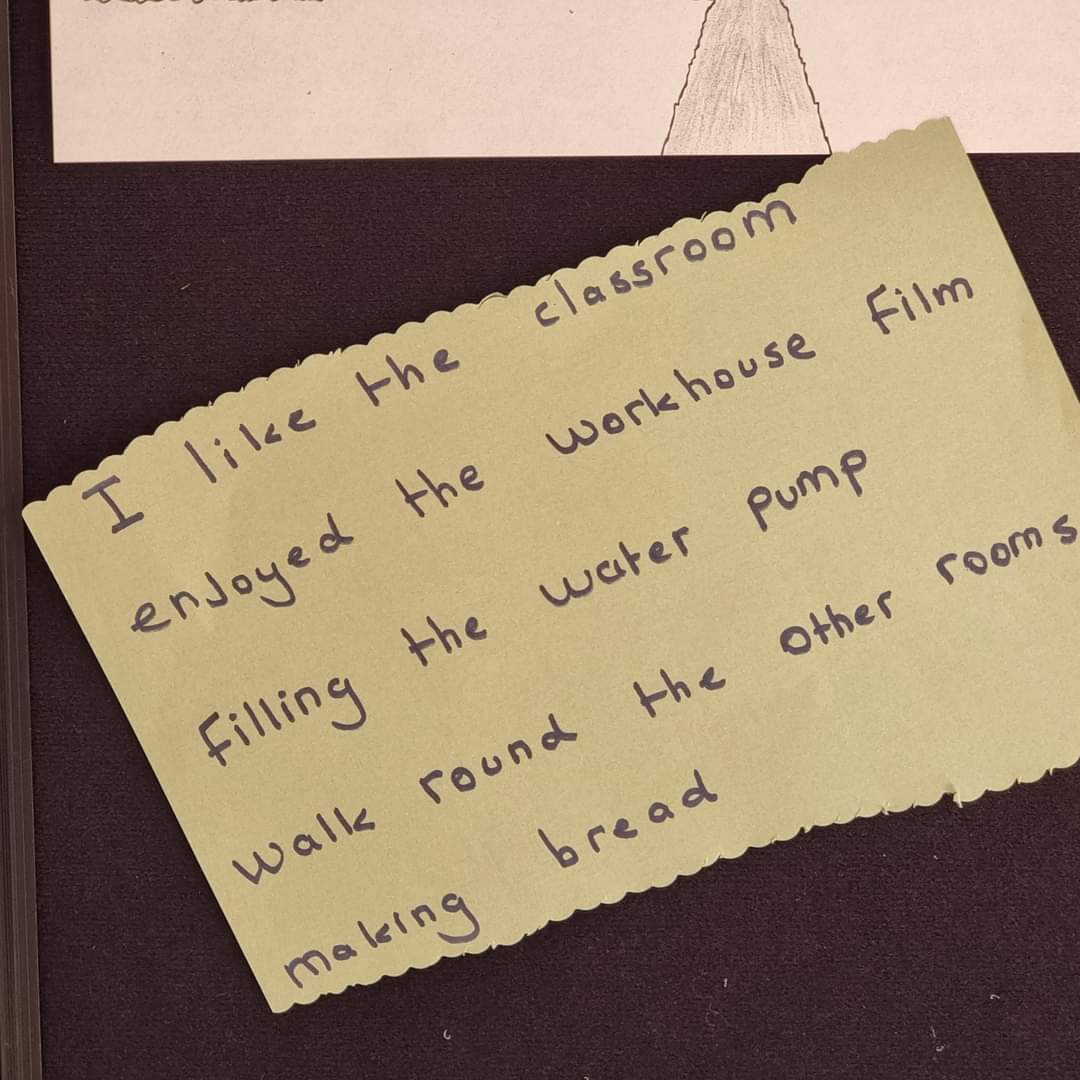 I like the classroom
enjoyed the workhouse film
filling the water pump
walk round the other rooms
making bread